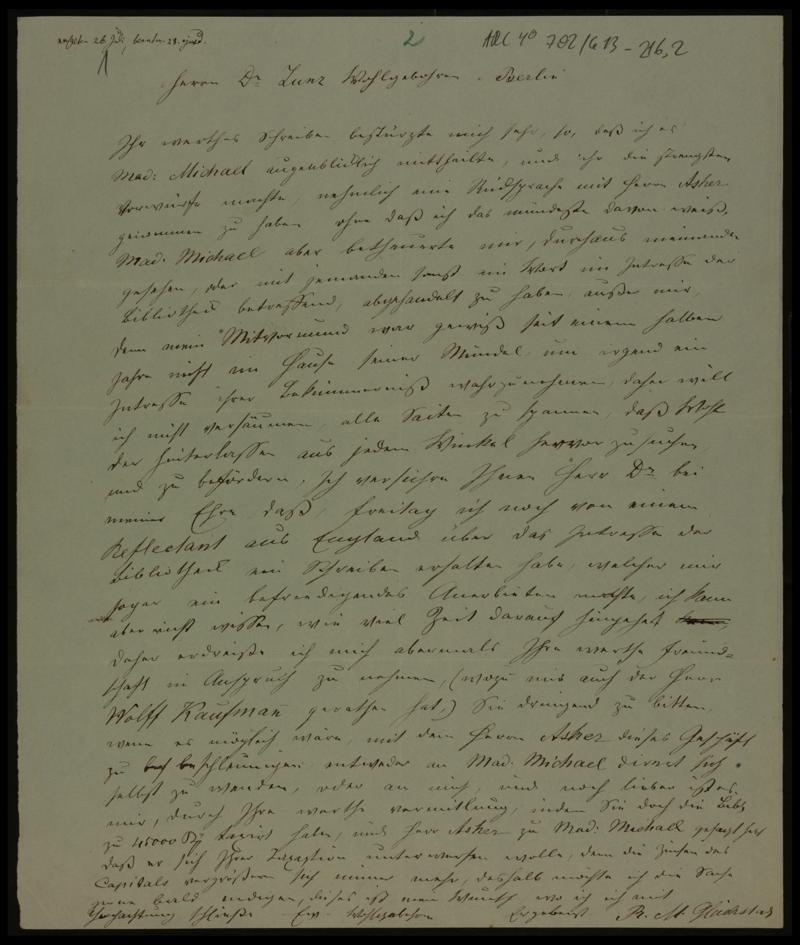 erhalten 26 Juli, beantw. 28. ejusd.
2
ARC 4° 792/G13-216,2
Herrn Dr Zunz Wohlgebohren Berlin
Ihr werthes Schreiben bestürzte mich sehr, so, daß ich es
Mad: Michael augenblicklich mittheilte, und ihr die strengsten
Vorwürfe machte, nehmlich eine Rücksprache mit Herrn Asher
genommen zu haben ohne daß ich das mindeste davon weiß,
Mad: Michael aber betheuerte mir, durchaus niemanden
gesehen, oder mit jemanden sonst ein Wort im Intresse der
Bibliothek betreffend, abgehandelt zu haben, außer mir,
denn mein Mitvormund war gewiß seit einem halben
Jahre nicht im Hause seiner Mündel um irgend ein
Intresse ihrer Bekümmerniß wahrzunehmen, daher will
ich nicht versäumen, alle Saiten zu spannen, daß Wohl
der Hinterlassen aus jedem Winkel hervor zu suchen
und zu befördern, Ich versichre Ihnen Herr Dr bei
meiner Ehre daß, Freitag ich noch von einem
Reflectant aus England über das Intresse der
Bibliothek ein Schreiben erhalten habe, welcher mir
sogar ein befriedigendes Anerbieten machte, ich kann
aber nicht wissen, wie viel Zeit darauf hingehet
daher erdreiste ich mich abermals Ihre werthe Freund=
schaft in Anspruch zu nehmen, (wozu mir auch der Herr
Wolff Kaufman gerathen hat,) Sie dringend zu bitten,
wenn es möglich wäre, mit dem Herrn Asher dieses Geschäft
zu beschleunigen entweder an Mad: Michael direct sich
selbst zu wenden, oder an mich, und noch lieber ist es
mir, durch Ihre werthe vermittlung, indem Sie doch die Bibl:
zu 15000 taxirt haben, und Herr Asher zu Mad: Michael gesagt hat
daß er sich Ihrer Taxation unterwerfen wolle, denn die Zinsen des
Capitals vergrößern sich immer mehr, deshalb möchte ich die Sache
gerne bald endigen, dieses ist mein Wunsch wo ich mit
Hochachtung schließe Ew. Wohlgebohren Ergebenst R. M. Glückstadt